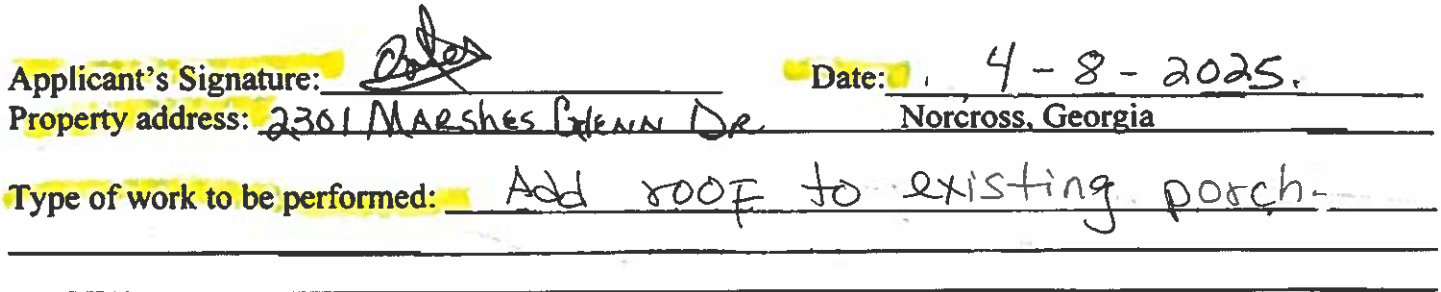 Applicant's Signature: Date: 4-8-2025.
Property address: 2301 MARshes GlENN DR. Norcross, Georgia
Type of work to be performed: Add rooF to existing porch-